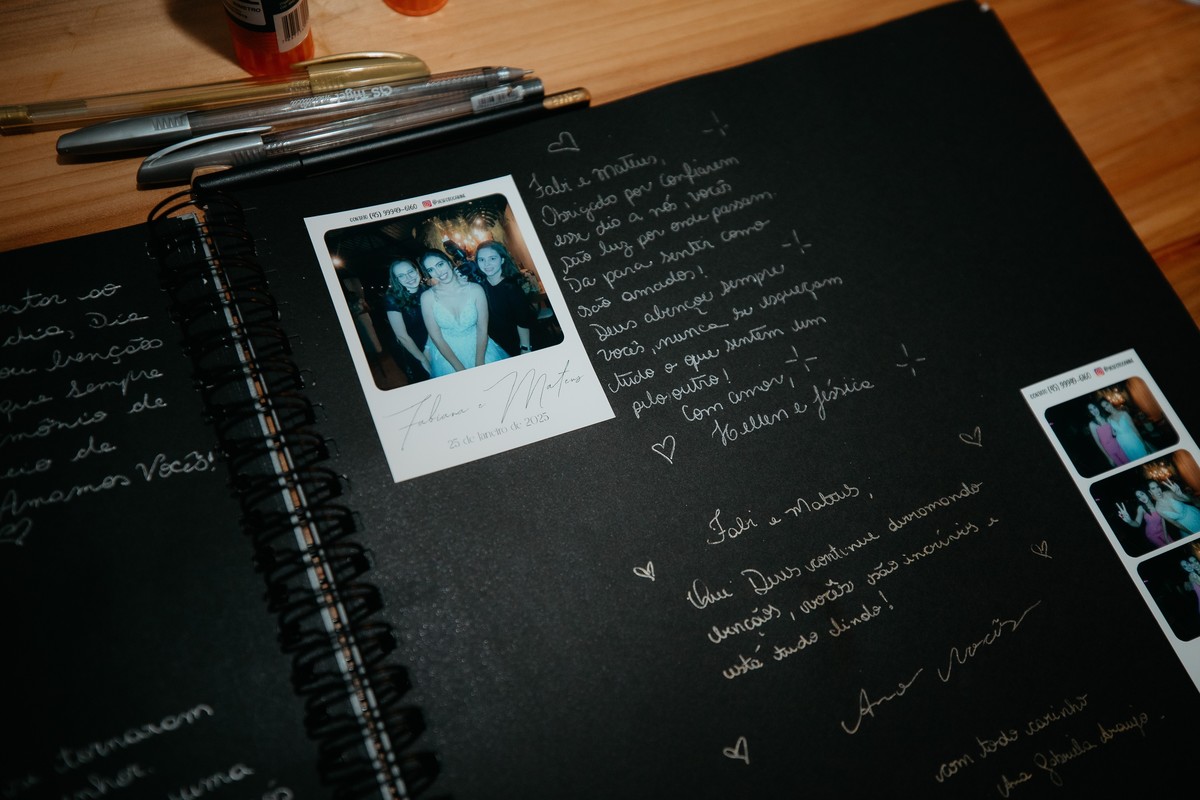 estar ao
dia, Dia
ou benção
que sempre
mônio de
uo de
Amamos Vocês!
tornaram
nher.
uma
CONTATO (45) 99949-6160
Fabiana e Mateus
25 de Janeiro de 2025
Fabi e Mateus,
Obrigado por confiarem
esse dia a nós, vocês
são luz por onde passam
Da para sentir como
são amados!
Deus abençoe sempre
vocês, nunca se esqueçam
tudo o que sentem um
pelo outro!
Com amor,
Hellen e Jéssica
Fabi e Mateus,
Que Deus continue derramando
bençãos, vocês são incríveis e
está tudo lindo!
Amo Vocês
com todo carinho
Ana Gabriela Araujo.